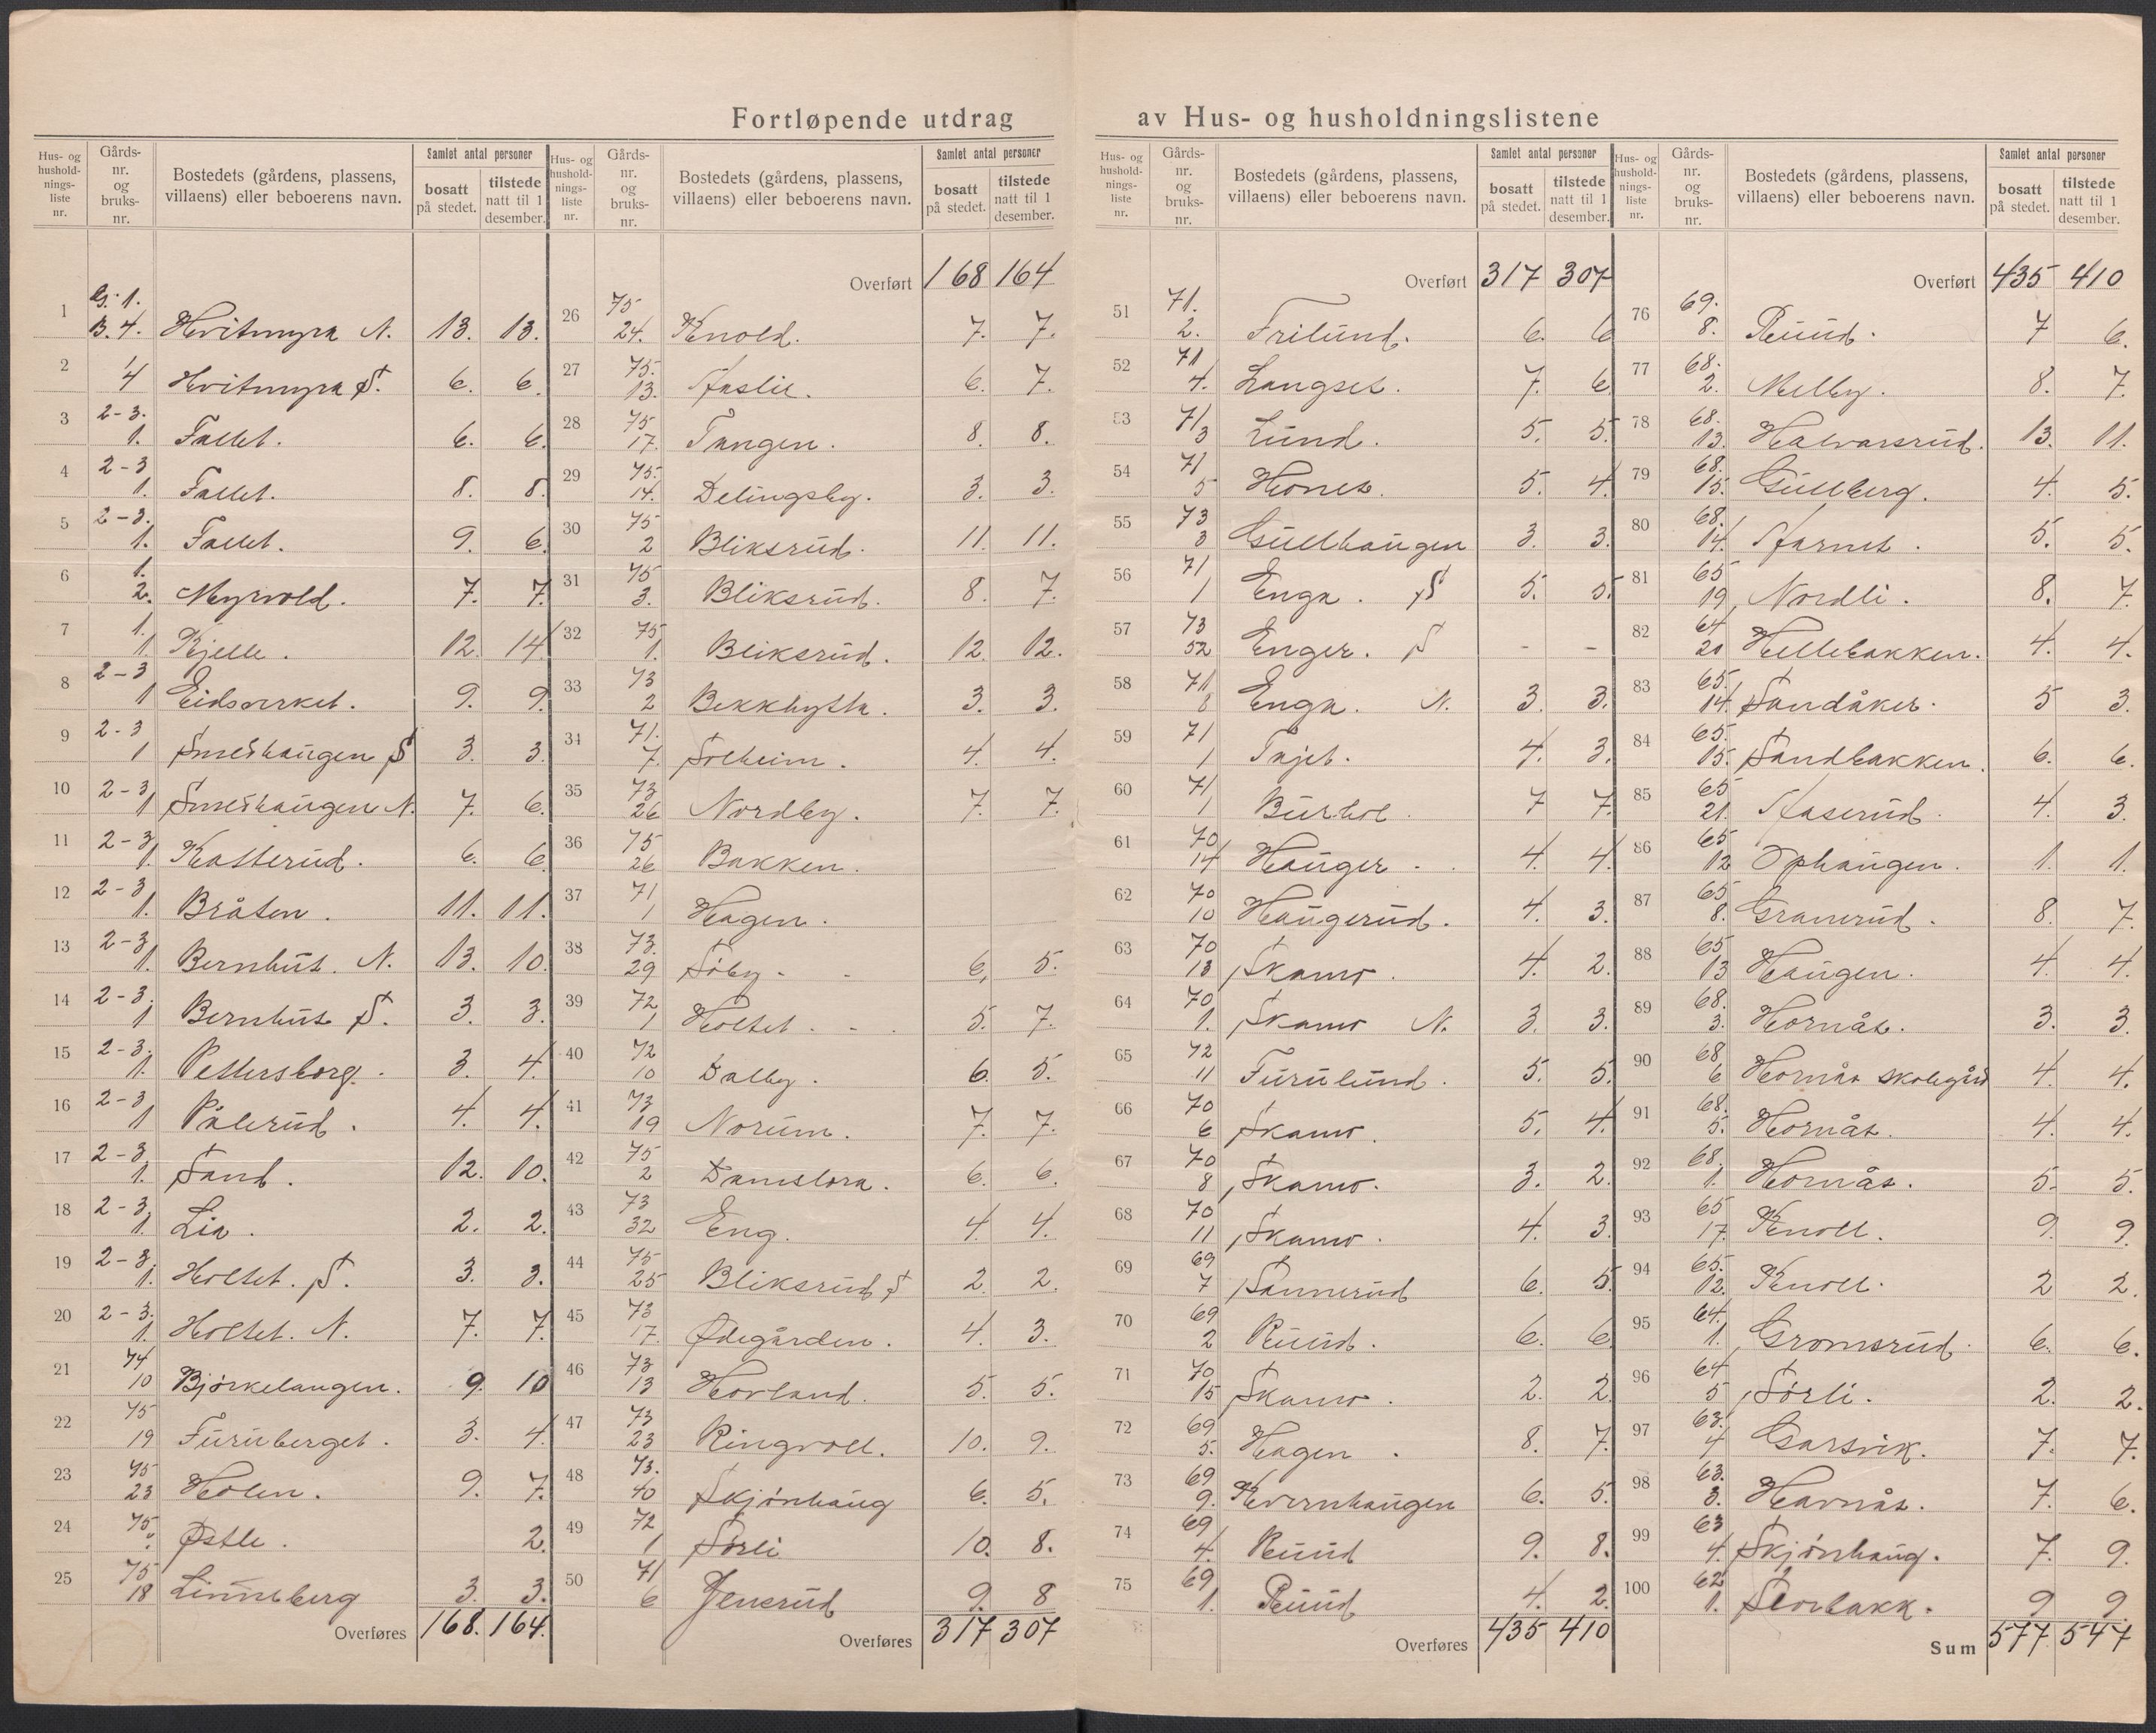 Fortløpende utdrag av Hus- og husholdningslistene
Hus- og husholdnings- liste nr. | Gårds- nr. og bruks- nr. | Bostedets (gårdens, plassens, villaens) eller beboerens navn. | Samlet antal personer | bosatt på stedet. | tilstede natt til 1 desember.
1 G. 1. B. 4. Hvitmyra N. 13. 13.
2 4 Hvitmyra S. 6. 6.
3 2-3. 1. Fallet. 6. 6.
4 2-3 1. Fallet. 8. 8.
5 2-3. 1. Fallet. 9. 6.
6 1. 2. Myrvold. 7. 7.
7 1. 1. Kjelle. 12. 14.
8 2-3 1 Eidsverket. 9. 9.
9 2-3 1 Smedhaugen S 3. 3.
10 2-3 1 Smedhaugen N. 7. 6.
11 2-3 1. Katterud. 6. 6.
12 2-3 1. Bråten. 11. 11.
13 2-3 1. Bernhus. N. 13. 10.
14 2-3. 1 Bernhus S. 3. 3.
15 2-3. 1. Pettersborg. 3. 4.
16 2-3 1 Pålerud. 4. 4.
17 2-3. 1. Sand. 12. 10.
18 2-3. 1. Lia. 2. 2.
19 2-3. 1. Holtet. S. 3. 3.
20 2-3. 1. Holtet. N. 7. 7.
21 74 10 Bjørkelangen. 9. 10
22 75 19 Furuberget. 3. 4.
23 75 23 Holen. 9. 7.
24 75. Østli. 2.
25 75 18 Linneberg 3. 3.
Overføres 168. 164.
Hus- og husholdnings- liste nr. | Gårds- nr. og bruks- nr. | Bostedets (gårdens, plassens, villaens) eller beboerens navn. | Samlet antal personer | bosatt på stedet. | tilstede natt til 1 desember.
Overført 168 164
26 75 24. Knold. 7. 7.
27 75. 13. Haslie. 6. 7.
28 75 17. Tangen. 8. 8.
29 75. 14. Delingsby. 3. 3.
30 75 2 Bliksrud. 11. 11.
31 75 3. Bliksrud. 8. 7.
32 75 1. Bliksrud. 12. 12.
33 73 2 Bekkhytta. 3. 3.
34 71. 7. Solheim. 4. 4.
35 73 26 Nordby. 7. 7.
36 75 26 Bakken.
37 71 1 Hagen.
38 73. 29 Søby. 6. 5.
39 72 1 Holtet. 5. 7.
40 72 10 Dalby. 6. 5.
41 73 19 Norum. 7. 7.
42 75 2 Damstora. 6. 6.
43 73 32 Eng. 4. 4.
44 75 25 Bliksrud S 2. 2.
45 73 17. Ødegården. 4. 3.
46 73 13 Hovland. 5. 5.
47 73 23 Ringvoll. 10. 9.
48 73. 40 Skjønhaug 6. 5.
49 72 1 Sørli 10. 8.
50 71 6 Jenerud 9. 8
Overføres 317 307
Hus- og husholdnings- liste nr. | Gårds- nr. og bruks- nr. | Bostedets (gårdens, plassens, villaens) eller beboerens navn. | Samlet antal personer | bosatt på stedet. | tilstede natt til 1 desember.
Overført 317 307
51 71. 2. Frilund. 6. 6
52 71 4. Langset. 7. 6
53 71 3 Lund. 5. 5.
54 71 5 Hones. 5. 4.
55 73 3 Gullhaugen 3. 3.
56 71 1 Enga. S 5. 5.
57 73 52 Enger. S - -
58 71 8 Enga. N. 3. 3.
59 71 1 Tajet. 4. 3.
60 71 1 Burhol. 7 7.
61 70 14 Hauger. 4. 4.
62 70 10 Haugerud. 4. 3.
63 70 13 Skamo. 4. 2.
64 70 1. Skamo N. 3. 3.
65 72 11 Furulund. 5. 5.
66 70 6 Skamo. 5. 4.
67 70 8 Skamo. 3. 2.
68 70 11 Skamo. 4. 3.
69 69 7 Sannerud 6. 5.
70 69 2 Ruud. 6. 6
71 70 15 Skamo. 2. 2.
72 69 5. Hagen. 8. 7.
73 69 9. Kvernhaugen 6. 5.
74 69 4. Ruud 9. 8.
75 69 1. Ruud 4. 2.
Overføres 435 410
Hus- og husholdnings- liste nr. | Gårds- nr. og bruks- nr. | Bostedets (gårdens, plassens, villaens) eller beboerens navn. | Samlet antal personer | bosatt på stedet. | tilstede natt til 1 desember.
Overført 435 410
76 69. 8. Ruud. 7 6.
77 68. 2. Melby. 8. 7.
78 68. 13. Halvarsrud. 13. 11.
79 68. 15. Gullberg. 4. 5.
80 68. 14. Harnes. 5. 5.
81 65 19 Nordli. 8. 7.
82 64 20 Hellebakken. 4. 4.
83 65. 14. Sandåker. 5 3.
84 65. 15. Sandbakken. 6. 6.
85 65 21. Haserud. 4. 3.
86 65 12 Ophaugen. 1. 1.
87 65 8. Granerud. 8. 7.
88 65 13 Haugen. 4. 4.
89 68. 3. Hornås. 3. 3.
90 68 6 Hornås skolegård 4. 4.
91 68. 5. Hornås. 4. 4.
92 68. 1. Hornås. 5. 5.
93 65 17 Knoll. 9. 9.
94 65. 12. Knoll. 2 2.
95 64. 1. Gromsrud. 6. 6.
96 64 5 Sørli. 2. 2.
97 63. 4 Garsvik. 7. 7.
98 63. 3. Havnås. 7. 6.
99 63 4. Skjønhaug. 7. 9.
100 62 1. Storbakk. 9 9.
Sum 577 547